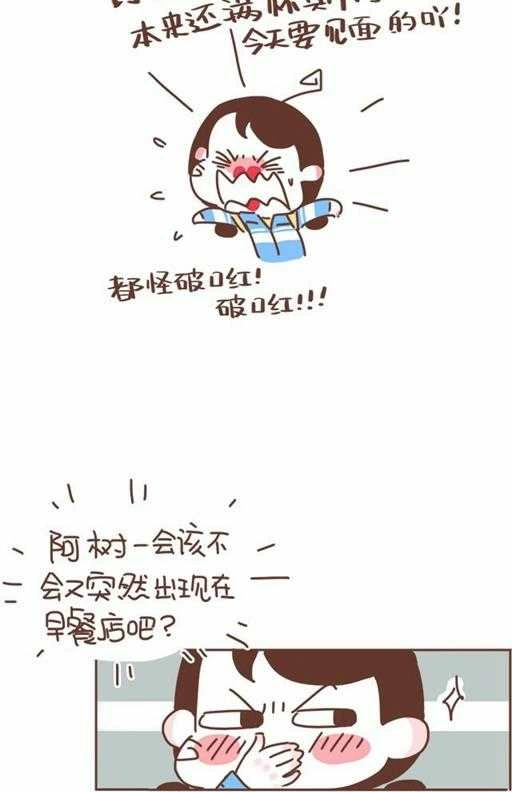 本来还满怀
今天要见面的吖!
都怪破口红!
破口红!!!
阿树一会该不
会又突然出现在
早餐店吧?